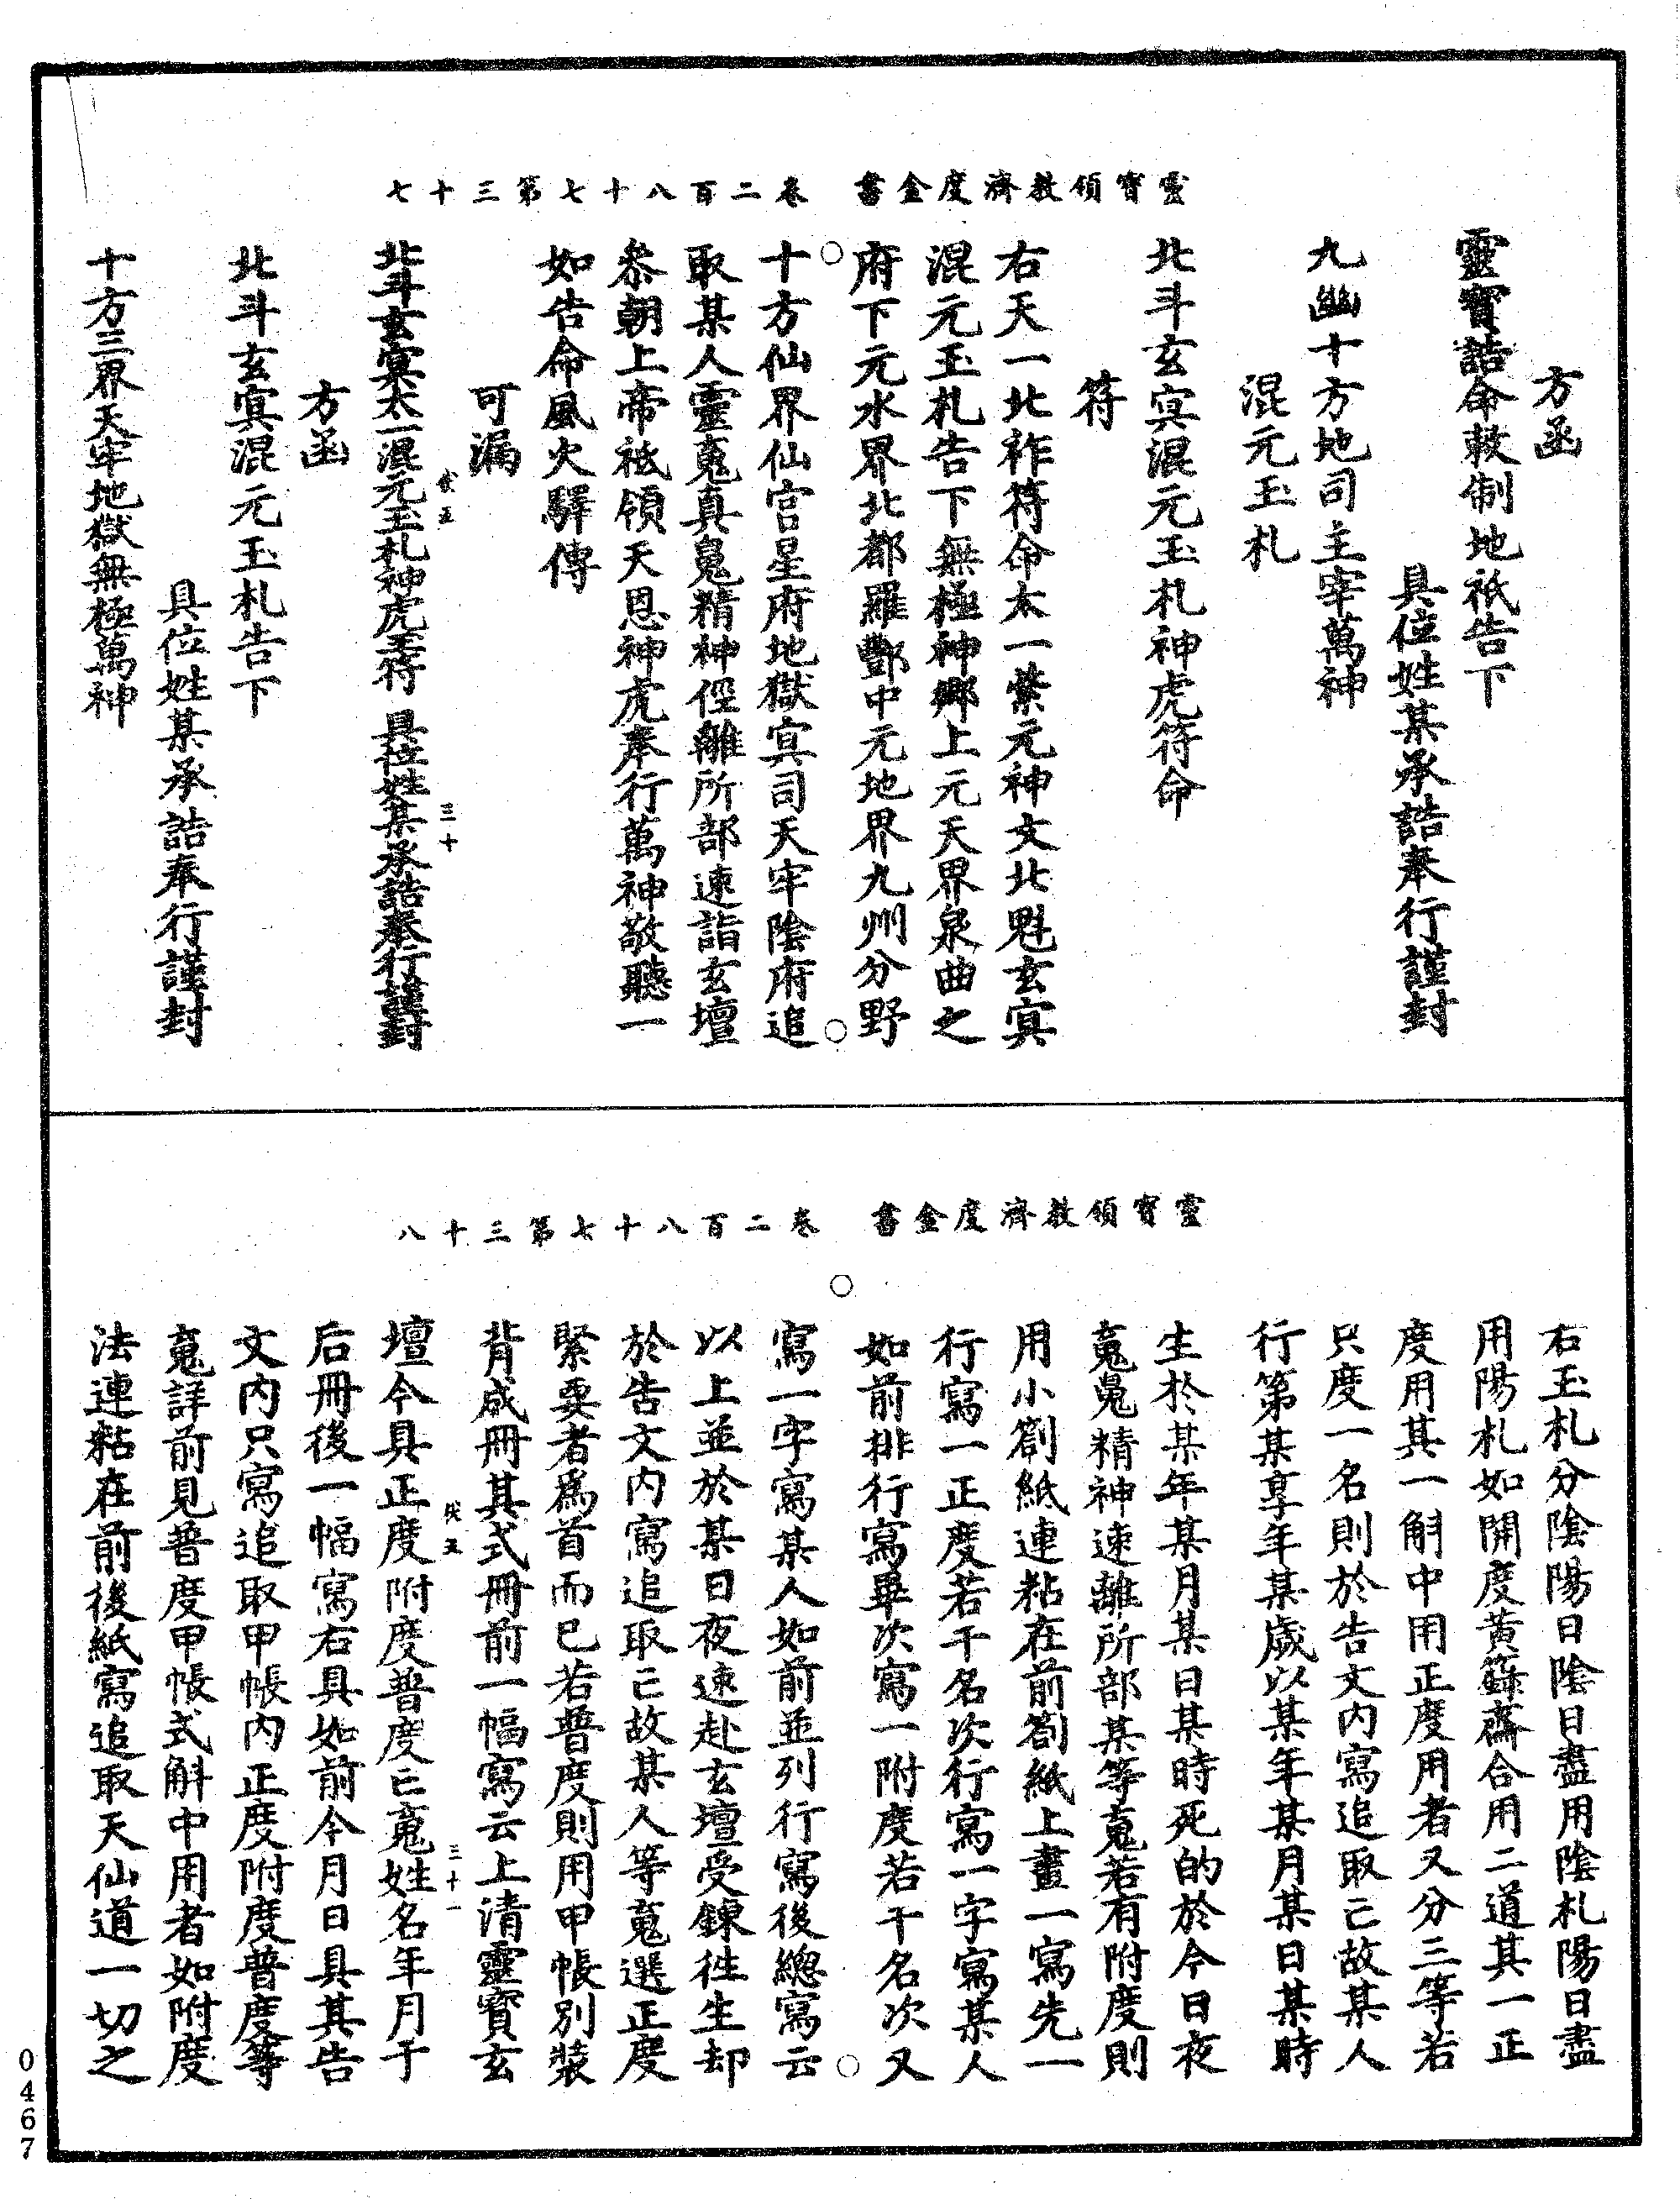 靈寶領教濟度金書　卷二百八十七第三十七
方函
靈寶誥命敕制地祇告下
具位姓某承誥奉行謹封
九幽十方地司主宰萬神
混元玉札
北斗玄冥混元玉札神虎符命
符
右天一北祚符命太一紫元神文北魁玄冥
混元玉札告下無極神鄉上元天界泉曲之
府下元水界北都羅酆中元地界九州分野
十方仙界仙官星府地獄冥司天牢陰府追
取某人靈䰟真䰟精神徑離所部速詣玄壇
叅朝上帝祗領天恩神虎奉行萬神敬聽一
如告命風火驛傳
可漏
北斗玄冥太一混元玉札神虎玉符　具位姓某承誥奉行謹封
三十
方函
北斗玄冥混元玉札告下
具位姓某承誥奉行謹封
十方三界天牢地獄無極萬神
靈寶領教濟度金書　卷二百八十七第三十八
右玉札分陰陽日陰日盡用陰札陽日盡
用陽札如開度黃籙齋合用二道其一正
度用其一斛中用正度用者又分三等若
只度一名則於告文內寫追取亡故某人
行第某享年某歲以某年某月某日某時
生於某年某月某日某時死的於今日夜
䰟䰟精神速離所部某等䰟若有附度則
用小劄紙連粘在前劄紙上畫一寫先一
行寫一正度若干名次行寫一字寫某人
如前排行寫畢次寫一附度若干名次又
寫一字寫某人如前並列行寫後緫寫云
以上並於某日夜速赴玄壇受鍊徃生却
於告文內寫追取亡故某人等䰟選正度
緊要者爲首而已若普度則用甲帳別裝
背成冊其式冊前一幅寫云上清靈寶玄
壇今具正度附度普度亡䰟姓名年月于
三十一
后冊後一幅寫右具如前今月日具其告
文內只寫追取甲帳內正度附度普度等
䰟詳前見普度甲帳式斛中用者如附度
法連粘在前後紙寫追取天仙道一切之
0467